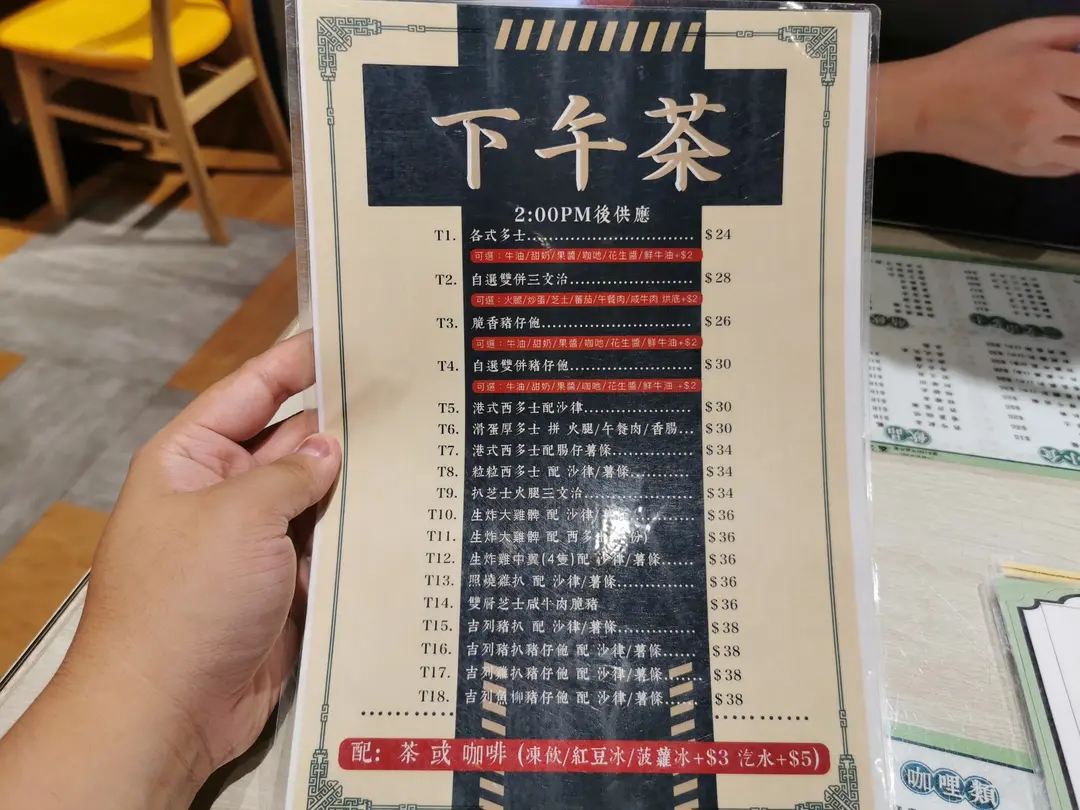 下午茶
2:00PM後供應
T1. 各式多士 $24
可選：牛油/甜奶/果醬/咖吔/花生醬/鮮牛油+$2
T2. 自選雙併三文治 $28
可選：火腿/炒蛋/芝士/蕃茄/午餐肉/咸牛肉 烘底+$2
T3. 脆香豬仔飽 $26
可選：牛油/甜奶/果醬/咖吔/花生醬/鮮牛油+$2
T4. 自選雙併豬仔飽 $30
可選：牛油/甜奶/果醬/咖吔/花生醬/鮮牛油 +$2
T5. 港式西多士配沙律 $30
T6. 滑蛋厚多士 拼 火腿/午餐肉/香腸... $30
T7. 港式西多士配腸仔薯條 $34
T8. 粒粒西多士 配 沙律/薯條 $34
T9. 扒芝士火腿三文治 $34
T10. 生炸大雞髀 配 沙律/條 $36
T11. 生炸大雞髀 配 西多份) $36
T12. 生炸雞中翼(4隻)配 沙律/薯條 $36
T13. 照燒雞扒 配 沙律/薯條 $36
T14. 雙層芝士咸牛肉脆豬 $36
T15. 吉列豬扒 配 沙律/薯條 $38
T16. 吉列豬扒豬仔飽 配 沙律/薯條 $38
T17. 吉列雞扒豬仔飽 配 沙律/薯條 $38
T18. 吉列魚柳豬仔飽 配 沙律/薯條 $38
配: 茶 或 咖啡 (凍飲/紅豆冰/菠蘿冰+$3 汽水+$5)
飲品
咖哩類